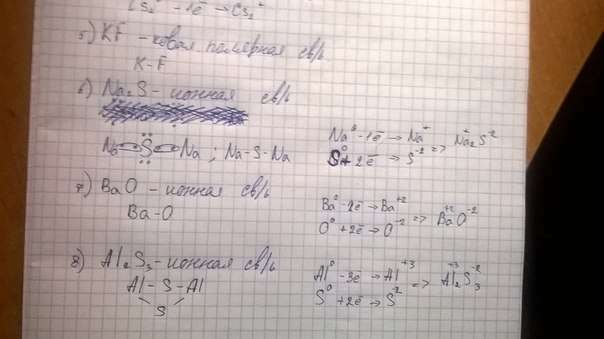 Cs₂⁺ - 1ē → Cs₂⁺
5) KF - ковал. полярная св/ь
K-F
6) Na₂S - ионная св/ь
Na S Na ; Na-S-Na
Na⁰ - 1ē → Na⁺ => Na₂⁺S⁻²
S⁰ + 2ē → S⁻²
7) BaO - ионная св/ь
Ba-O
Ba⁰ - 2ē → Ba⁺² => Ba⁺²O⁻²
O⁰ + 2ē → O⁻²
8) Al₂S₃ - ионная св/ь
Al - S - Al
S
Al⁰ - 3ē → Al⁺³ => Al₂⁺³S₃⁻²
S⁰ + 2ē → S⁻²